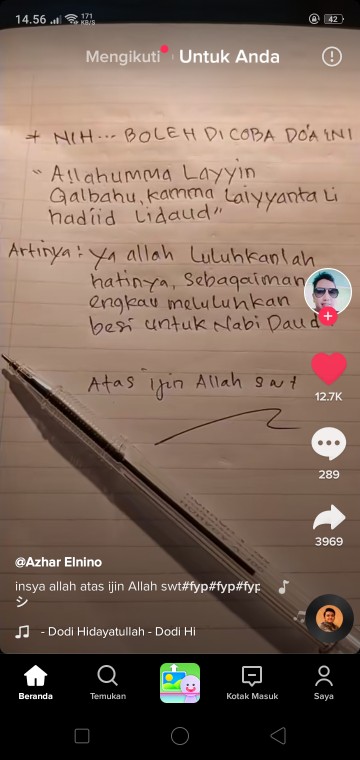 14.56
171
KB/S
42
Mengikuti
Untuk Anda
+ NIH... BOLEH DICOBA DO'A INI
" Allahumma Layyin
Qalbahu, kamma Laiyyanta Li
hadiid Lidaud"
Artinya: Ya allah Luluhkanlah
hatinya, Sebagaiman
engkau meluluhkan
besi untuk Nabi Daud
Atas ijin Allah swt
12.7K
289
3969
@Azhar Elnino
insya allah atas ijin Allah swt#fyp#fyp#fyp
シ
- Dodi Hidayatullah - Dodi Hi
Beranda
Temukan
Kotak Masuk
Saya